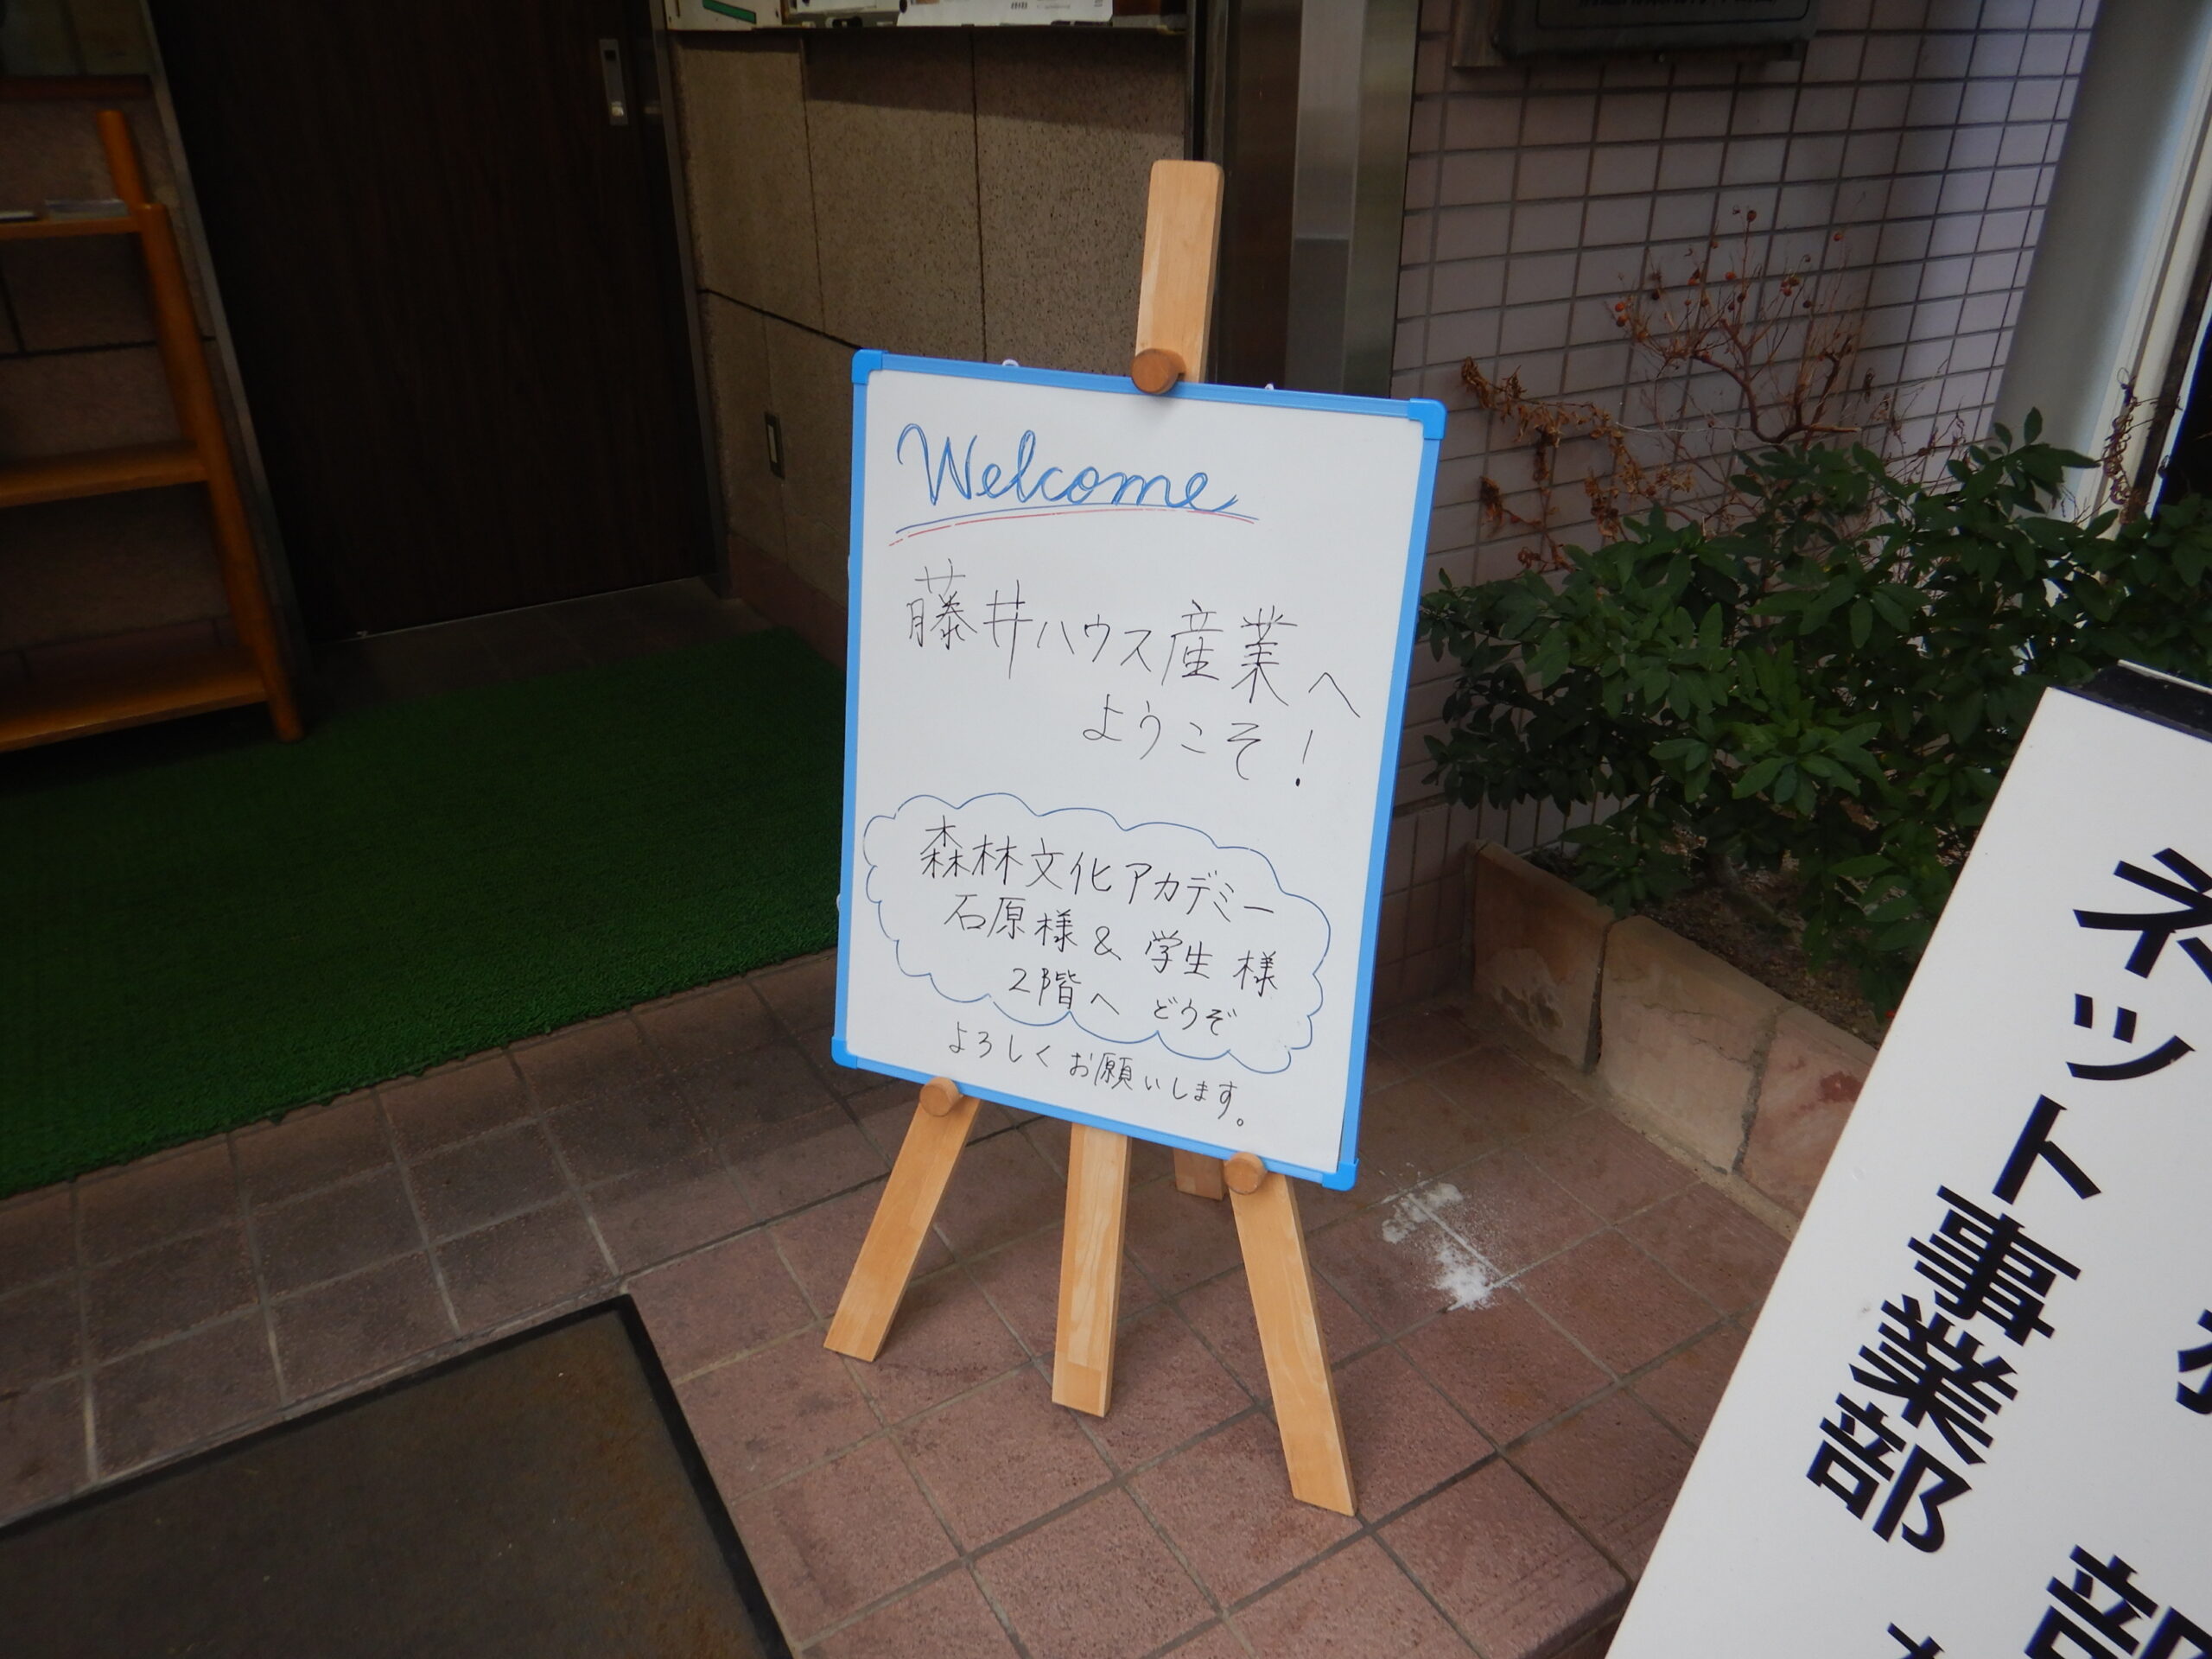 Welcome
藤井ハウス産業へ
ようこそ!
森林文化アカデミー
石原様 & 学生様
2階へ どうぞ
よろしくお願いします。
ネット事業部
部